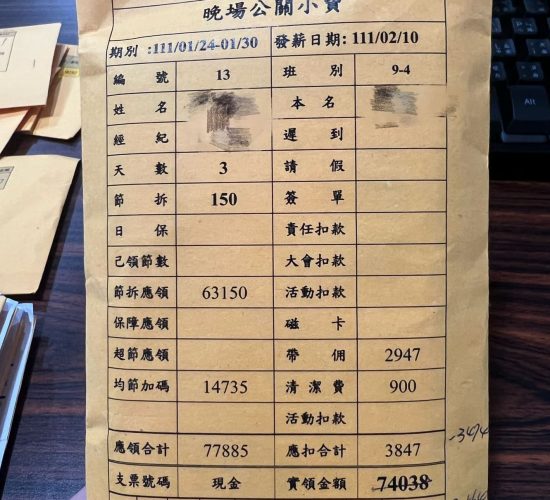 晚場公關小資
期別:111/01/24-01/30 發薪日期:111/02/10
編號 13 班別 9-4
姓名 本名
經紀 遲到
天數 3 請假
節拆 150 簽單
日保 責任扣款
已領節數 大會扣款
節拆應領 63150 活動扣款
保障應領 磁卡
超節應領 帶佣 2947
均節加碼 14735 清潔費 900
活動扣款
應領合計 77885 應扣合計 3847
支票號碼 現金 實領金額 74038
Alt